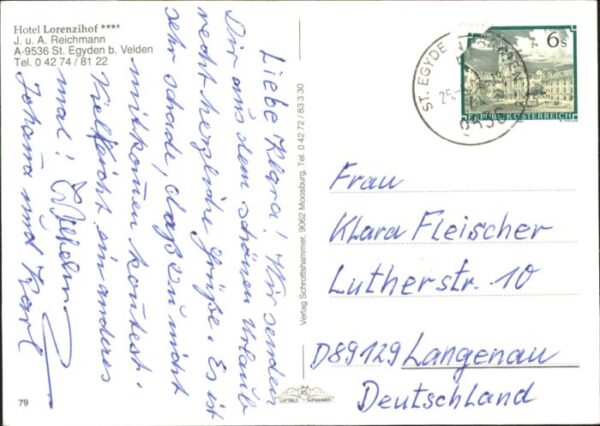 Hotel Lorenzihof ****
J. u. A. Reichmann
A-9536 St. Egyden b. Velden
Tel. 0 42 74 / 81 22
Liebe Klara! Wir senden
Dir aus dem schönen Urlaub
recht herzliche Grüße. Es ist
sehr schade, daß du nicht
mitkommen kontest.
Vielleicht ein anderes
mal! Wilhelm
Johanna und Karl
79
Verlag Schrottshammer, 9062 Moosburg, Tel. 0 42 72 / 83 3 30
LUFTBILD AUFNAHMEN
ST. EGYDE
9536
6 S
REPUBLIK ÖSTERREICH
Frau
Klara Fleischer
Lutherstr. 10
D89129 Langenau
Deutschland